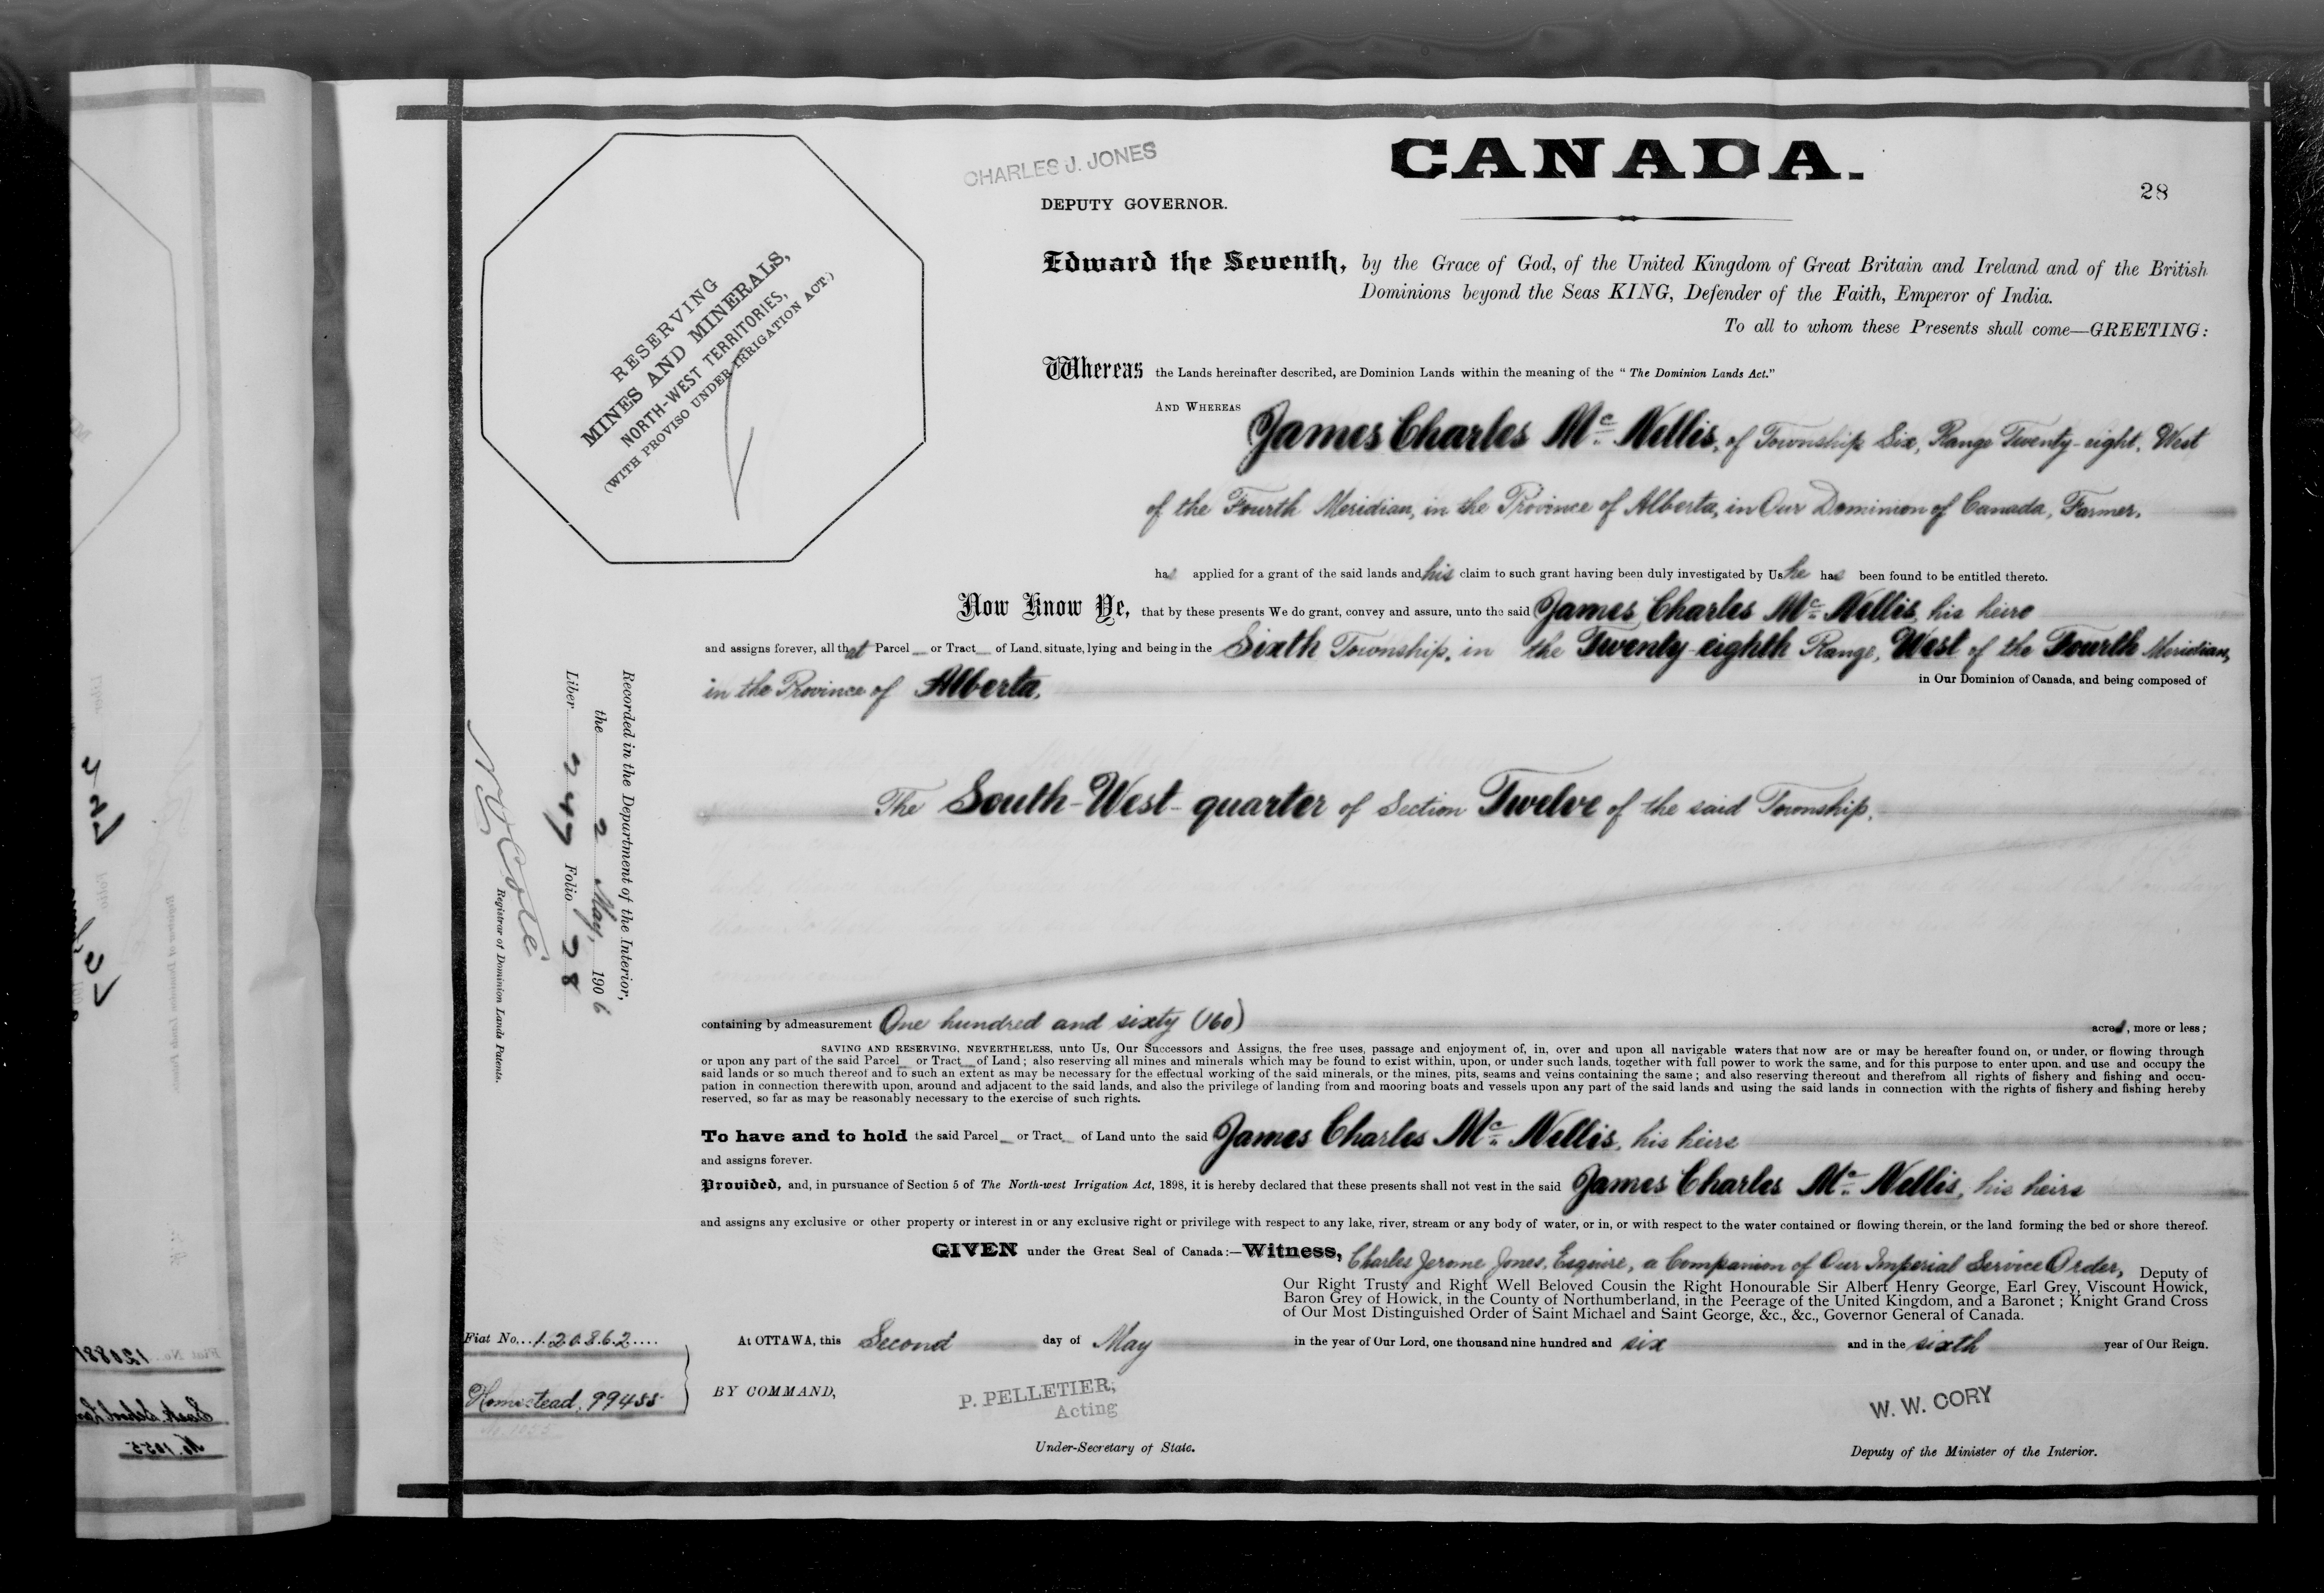 CHARLES J. JONES
CANADA.
28
DEPUTY GOVERNOR.
RESERVING
MINES AND MINERALS,
NORTH-WEST TERRITORIES,
(WITH PROVISO UNDER IRRIGATION ACT.)
Edward the Seventh, by the Grace of God, of the United Kingdom of Great Britain and Ireland and of the British
Dominions beyond the Seas KING, Defender of the Faith, Emperor of India.
To all to whom these Presents shall come—GREETING:
Whereas the Lands hereinafter described, are Dominion Lands within the meaning of the "The Dominion Lands Act."
AND WHEREAS James Charles Mc Nellis, of Township Six, Range Twenty-eight, West
of the Fourth Meridian, in the Province of Alberta, in Our Dominion of Canada, Farmer,
has applied for a grant of the said lands and his claim to such grant having been duly investigated by Us he has been found to be entitled thereto.
Now Know Ye, that by these presents We do grant, convey and assure, unto the said James Charles Mc Nellis, his heirs
and assigns forever, all that Parcel or Tract of Land, situate, lying and being in the Sixth Township, in the Twenty-eighth Range, West of the Fourth Meridian,
in the Province of Alberta, in Our Dominion of Canada, and being composed of
The South-West-quarter of Section Twelve of the said Township,
Recorded in the Department of the Interior,
the 2 May, 1906
Liber 247 Folio 28
N O Coté
Registrar of Dominion Lands Patents.
containing by admeasurement One hundred and sixty (160) acres, more or less;
SAVING AND RESERVING, NEVERTHELESS, unto Us, Our Successors and Assigns, the free uses, passage and enjoyment of, in, over and upon all navigable waters that now are or may be hereafter found on, or under, or flowing through
or upon any part of the said Parcel or Tract of Land; also reserving all mines and minerals which may be found to exist within, upon, or under such lands, together with full power to work the same, and for this purpose to enter upon, and use and occupy the
said lands or so much thereof and to such an extent as may be necessary for the effectual working of the said minerals, or the mines, pits, seams and veins containing the same; and also reserving thereout and therefrom all rights of fishery and fishing and occu-
pation in connection therewith upon, around and adjacent to the said lands, and also the privilege of landing from and mooring boats and vessels upon any part of the said lands and using the said lands in connection with the rights of fishery and fishing hereby
reserved, so far as may be reasonably necessary to the exercise of such rights.
To have and to hold the said Parcel or Tract of Land unto the said James Charles Mc Nellis, his heirs
and assigns forever.
Provided, and, in pursuance of Section 5 of The North-west Irrigation Act, 1898, it is hereby declared that these presents shall not vest in the said James Charles Mc Nellis, his heirs
and assigns any exclusive or other property or interest in or any exclusive right or privilege with respect to any lake, river, stream or any body of water, or in, or with respect to the water contained or flowing therein, or the land forming the bed or shore thereof.
GIVEN under the Great Seal of Canada:—Witness, Charles Jerome Jones, Esquire, a Companion of Our Imperial Service Order, Deputy of
Our Right Trusty and Right Well Beloved Cousin the Right Honourable Sir Albert Henry George, Earl Grey, Viscount Howick,
Baron Grey of Howick, in the County of Northumberland, in the Peerage of the United Kingdom, and a Baronet; Knight Grand Cross
of Our Most Distinguished Order of Saint Michael and Saint George, &c., &c., Governor General of Canada.
Fiat No. 120862
At OTTAWA, this Second day of May in the year of Our Lord, one thousand nine hundred and six and in the sixth year of Our Reign.
Homestead, 99455
BY COMMAND,
P. PELLETIER,
Acting
Under-Secretary of State.
W. W. CORY
Deputy of the Minister of the Interior.